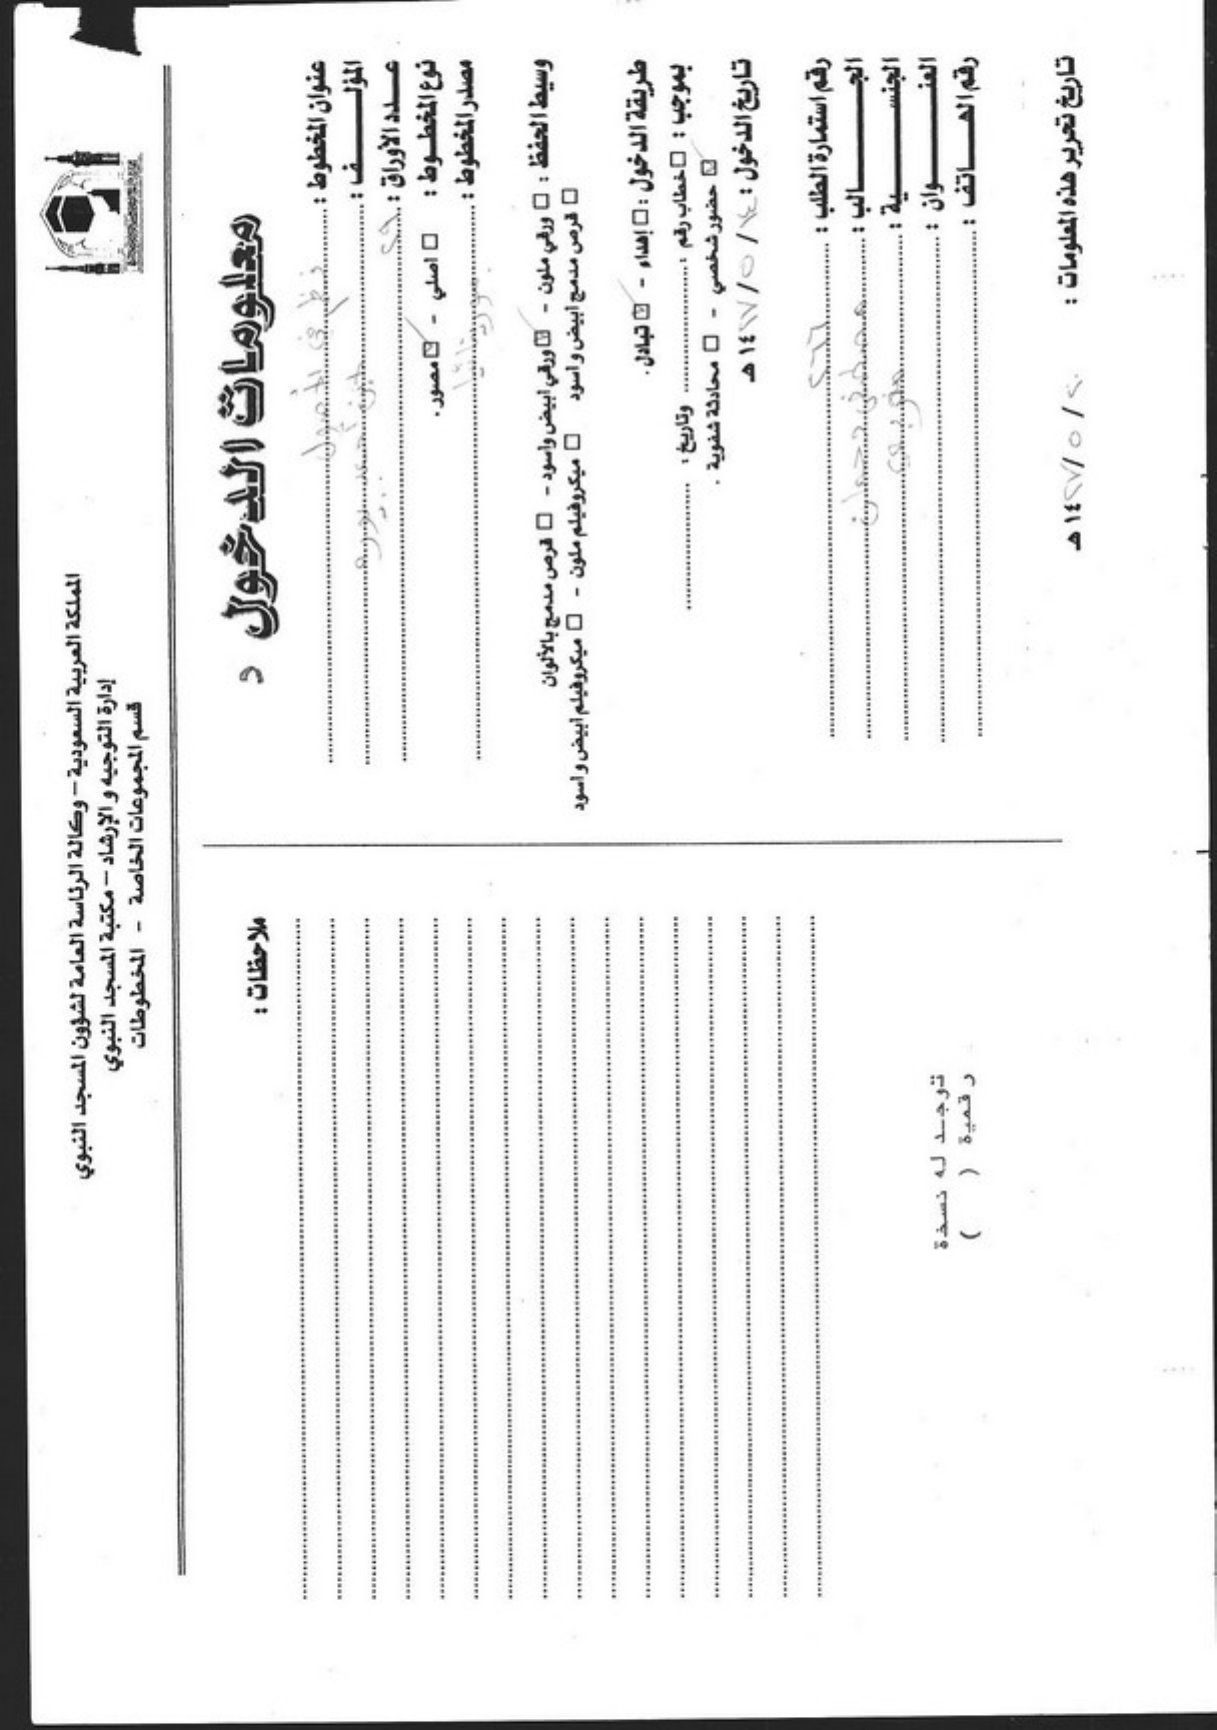 المملكة العربية السعودية – وكالة الرئاسة العامة لشؤون المسجد النبوي
إدارة التوجيه والإرشاد – مكتبة المسجد النبوي
قسم المجموعات الخاصة - المخطوطات
معلومات الدخول
عنوان المخطوط : نظم في
المؤلف :
عدد الأوراق : ٢٩
نوع المخطوط : □ اصلي - ☑ مصور .
مصدر المخطوط : موريتانيا
وسيط الحفظ : □ ورقي ملون - ☑ ورقي ابيض واسود - □ قرص مدمج بالألوان
□ قرص مدمج ابيض و اسود □ ميكروفيلم ملون - □ ميكروفيلم ابيض و اسود
طريقة الدخول : □ إهداء - ☑ تبادل .
بموجب : □ خطاب رقم : .......... وتاريخ : ..........
☑ حضور شخصي - □ محادثة شفوية .
تاريخ الدخول : / ٥ / ١٤٢٧ هـ
رقم استمارة الطلب : ٢٦٦
الجالب : مصطفى
الجنسية :
العنوان :
رقم الهاتف :
تاريخ تحرير هذه المعلومات : / ٥ / ١٤٢٧ هـ
ملاحظات :
توجد له نسخة
رقمية ( )